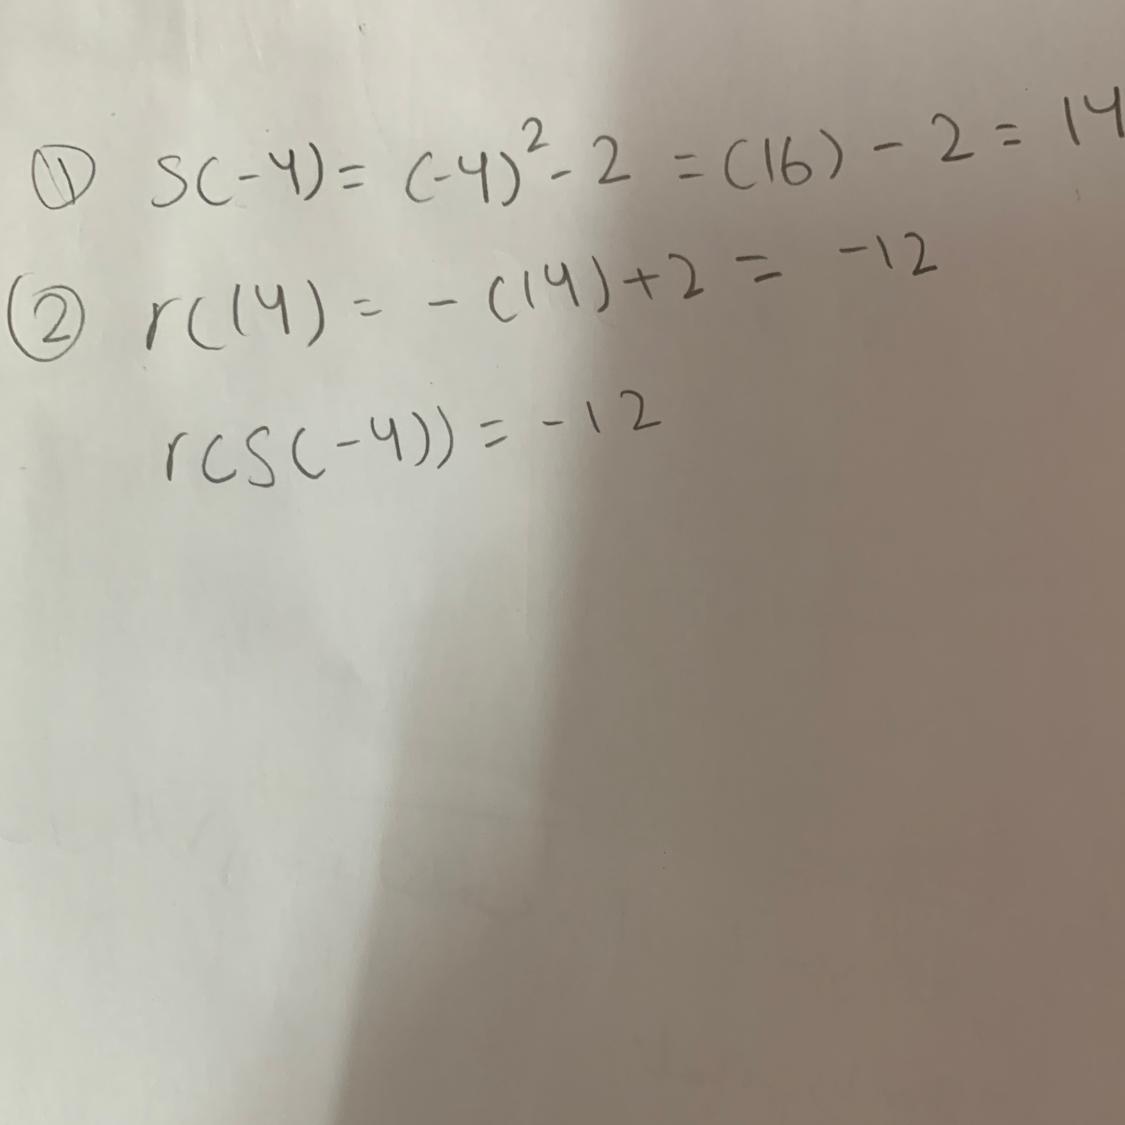 ① S(-4) = (-4)² - 2 = (16) - 2 = 14
② r(14) = - (14) + 2 = -12
r(S(-4)) = -12